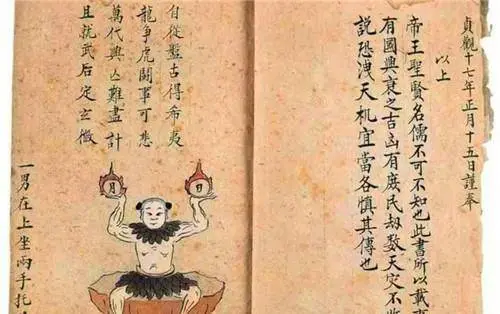 貞觀十七年正月十五日謹奉
以上
帝王聖賢名儒不可不知也此書所以載
有國興衰之吉凶有庶民劫數天灾不
説恐洩天机宜當各慎其傳也
自從盤古得希夷
龍爭虎鬪事可悲
萬代興亾難盡計
且就武后定玄微
日
月
一男在上坐兩手托